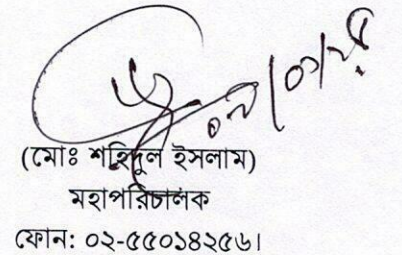 (মোঃ শহিদুল ইসলাম)
মহাপরিচালক
ফোন: ০২-৫৫০১৪২৫৬।